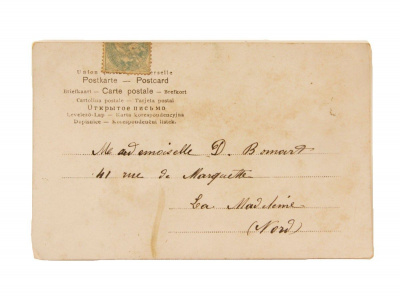 Union postale universelle
Postkarte — Postcard
Briefkaart — Carte postale — Brefkort
Cartolina postale — Tarjeta postal
Открытое письмо
Levelező-Lap — Karta korespondencyjna
Dopisnice — Korespondenční lístek
Mademoiselle D.
41 rue de Marquette
La Madeleine
(Nord)